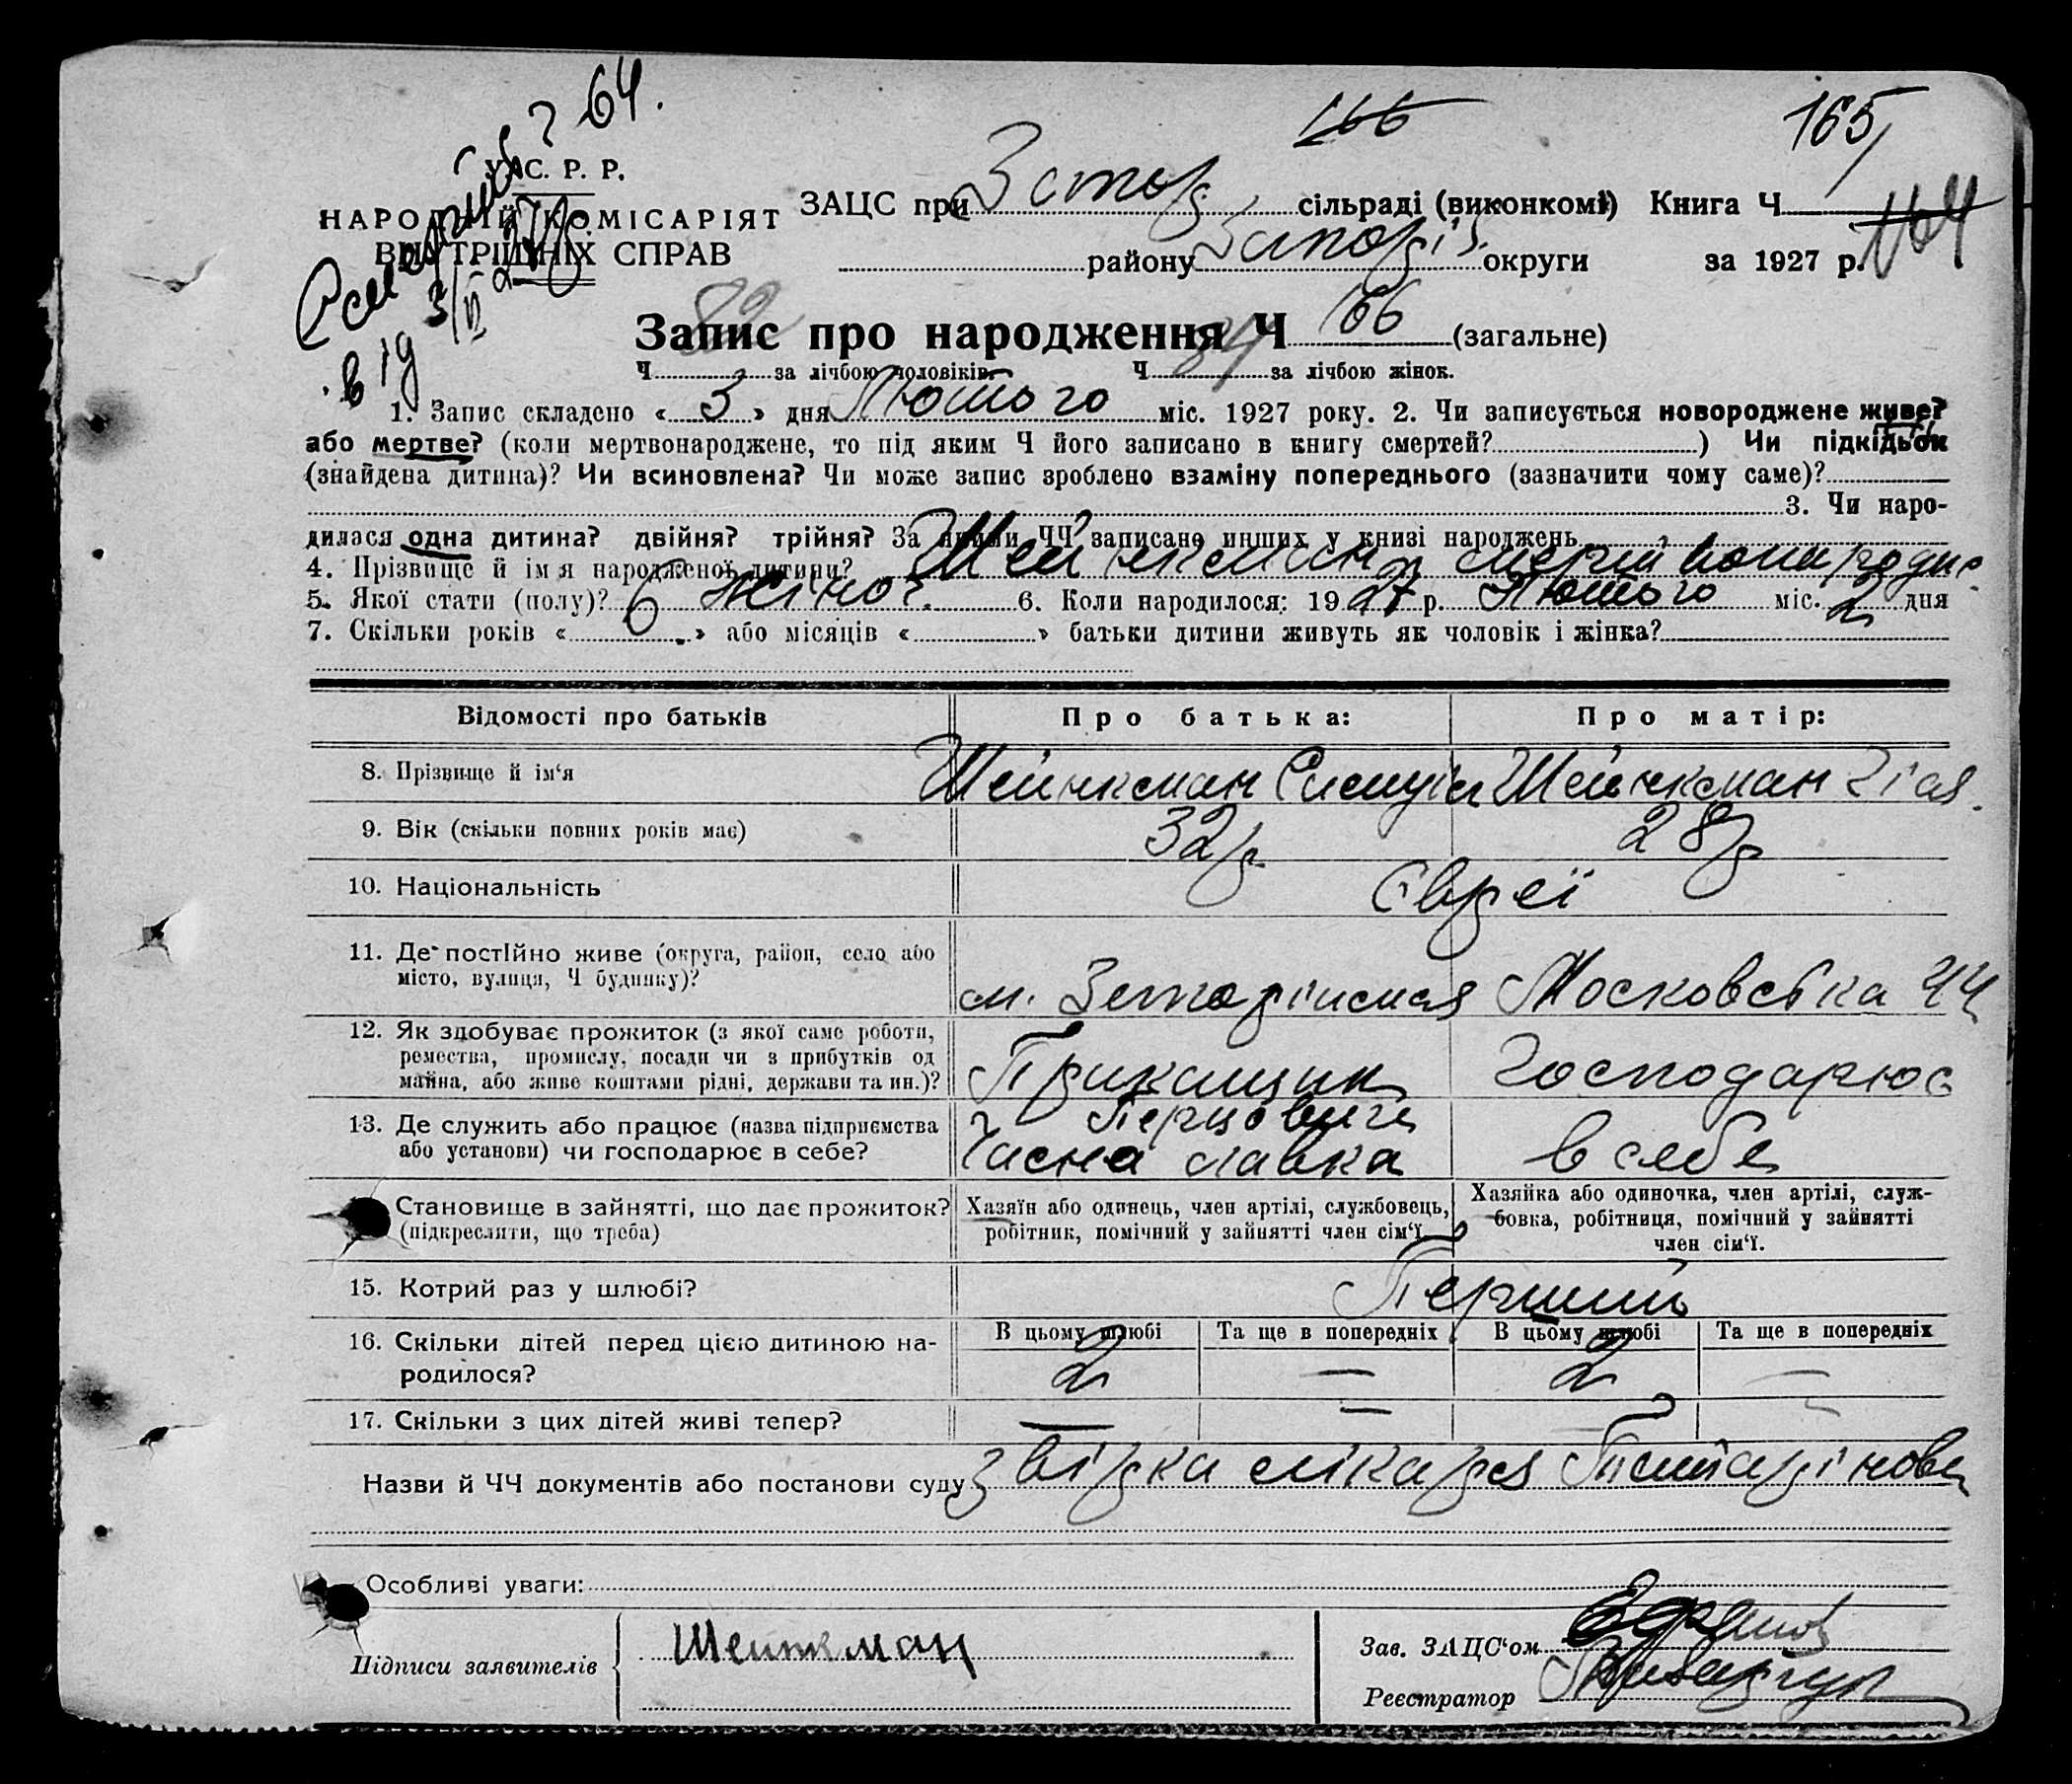 64.
166
165
У. С. Р. Р.
НАРОДНІЙ КОМІСАРІЯТ
ВНУТРІШНІХ СПРАВ
ЗАЦС при сільраді (виконкомі) Книга Ч
164
району округи за 1927 р.
від 3/II 27
82
Запис про народження Ч 166 (загальне)
Ч за лічбою чоловіків. Ч 84 за лічбою жінок.
1. Запис складено « 3 » дня Лютого міс. 1927 року. 2. Чи записується новороджене живе?
або мертве? (коли мертвонароджене, то під яким Ч його записано в книгу смертей? ) Чи підкідьок
(знайдена дитина)? Чи всиновлена? Чи може запис зроблено взаміну попереднього (зазначити чому саме)?
3. Чи наро-
дилася одна дитина? двійня? трійня? За якими ЧЧ записано инших у книзі народжень
4. Прізвище й ім'я народженої дитини? Шейнкман
5. Якої стати (полу)? жіноч. 6. Коли народилося: 1927 р. Лютого міс. 2 дня
7. Скільки років « 6 » або місяців « » батьки дитини живуть як чоловік і жінка?
Відомості про батьків Про батька: Про матір:
8. Прізвище й ім'я Шейнкман Шейнкман
9. Вік (скільки повних років має) 32 р 28 р
10. Національність Євреї
11. Де постійно живе (округа, район, село або
місто, вулиця, Ч будинку)? м. Московська 44
12. Як здобуває прожиток (з якої саме роботи,
ремества, промислу, посади чи з прибутків од
майна, або живе коштами рідні, держави та ин.)? Прикащик Господарює
13. Де служить або працює (назва підприємства
або установи) чи господарює в себе? лавка в себе
Становище в зайнятті, що дає прожиток?
(підкреслити, що треба)
Хазяїн або одинець, член артілі, службовець,
робітник, помічний у зайнятті член сім'ї.
Хазяйка або одиночка, член артілі, служ-
бовка, робітниця, помічний у зайнятті
член сім'ї.
15. Котрий раз у шлюбі? Перший
16. Скільки дітей перед цією дитиною на-
родилося?
В цьому шлюбі Та ще в попередніх В цьому шлюбі Та ще в попередніх
2 — 2 —
17. Скільки з цих дітей живі тепер? — —
Назви й ЧЧ документів або постанови суду лікаря
Особливі уваги:
Підписи заявителів Шейнкман
Зав. ЗАЦС'ом
Реєстратор